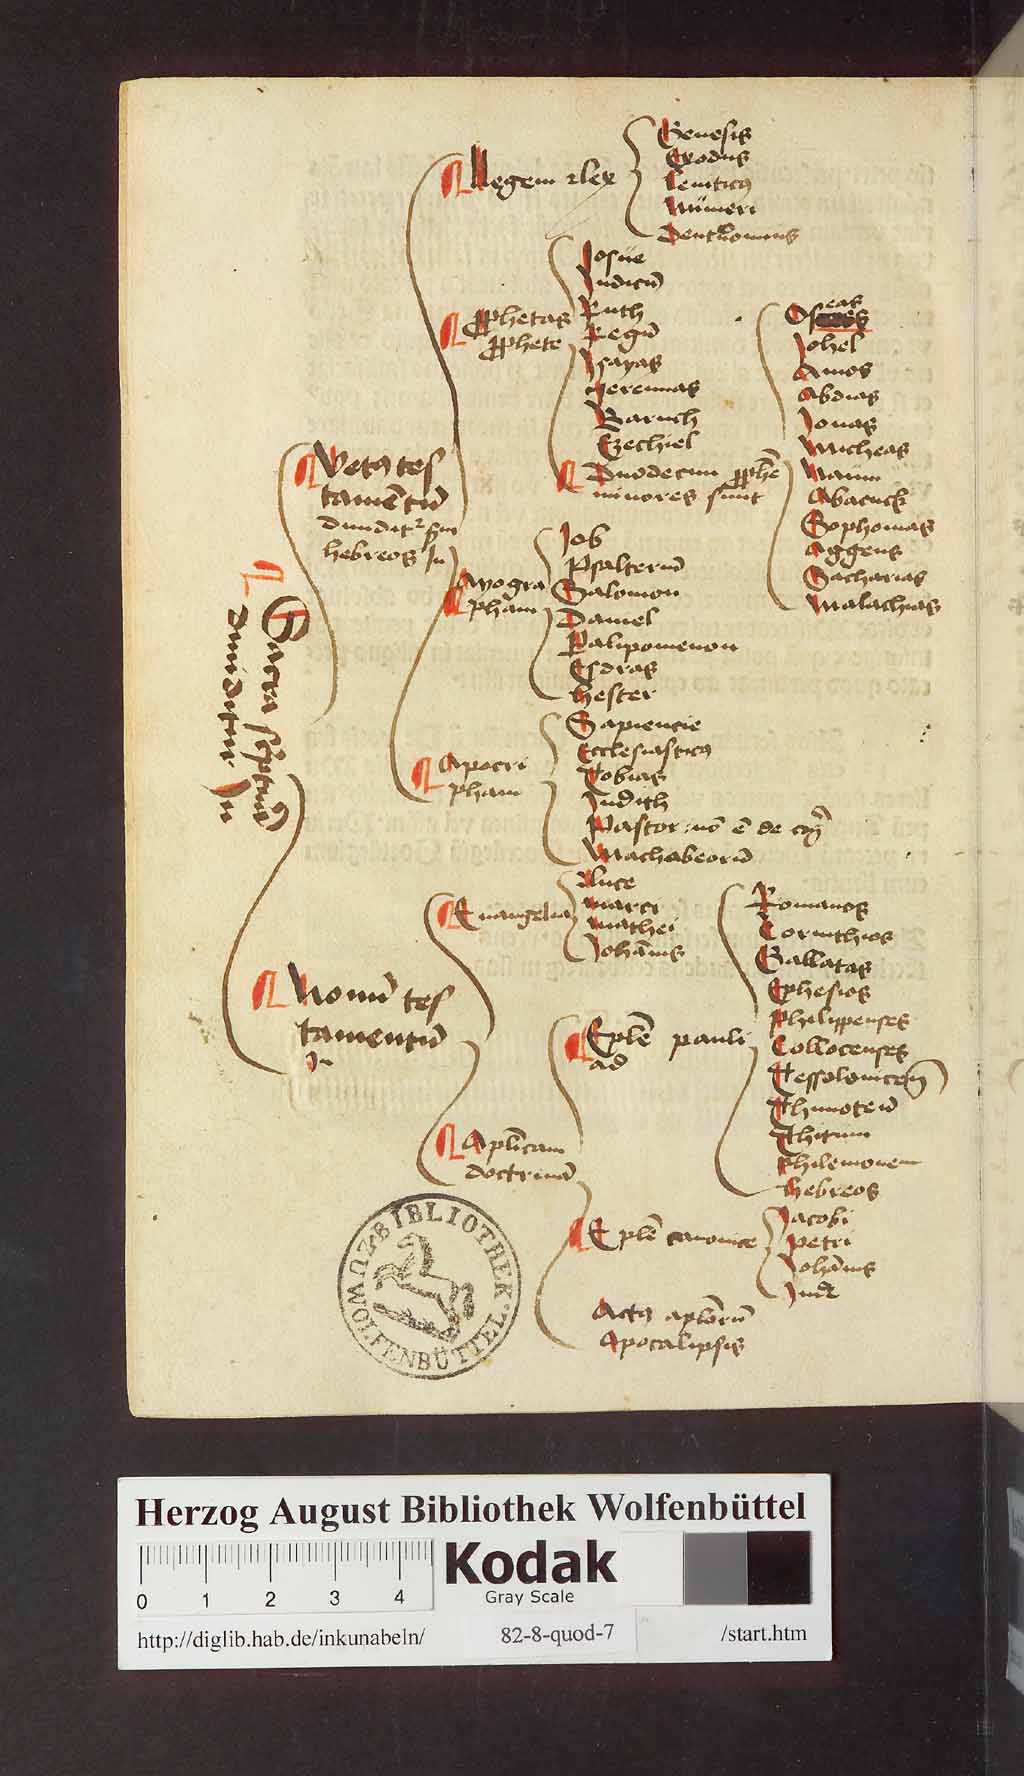 Sacra scptura
diuiditur In
Vetꝰ tes
tamētū
diuidit² scm
hebreos In
Legem ⁊ lex
Genesis
Exodus
Leuiticꝰ
Numeri
Deutronomius
Prophetas
Prophete
Josue
Judicū
Ruth
Regū
Isayas
Jeremias
Baruch
Ezechiel
Duodecim prophe
minores sunt
Oseas
Johel
Amos
Abdias
Jonas
Micheas
Naum
Abacuck
Sophonias
Aggeus
Sacharias
Malachias
Ayogra
pham
Job
Psalteriū
Salomon
Daniel
Palipomenon
Esdras
Hester
Apocri
pham
Sapiencie
Ecclesiasticꝰ
Tobias
Judith
Pastor nō ē de
Machabeorū
Nouū tes
tamentū
In
Euangelia
Luce
Marci
Mathei
Johānis
Aplicam
doctrinā
Eple pauli
ad
Romanos
Corinthios
Gallatas
Ephesios
Philippenses
Collocenses
Tessolonicen
Thimoteū
Thitum
Philemonem
Hebreos
Eple canonice
Jacobi
Petri
Johānis
Jude
Actꝰ aplorū
Apocalipsis
BIBLIOTHEK
WOLFENBÜTTEL
Herzog August Bibliothek Wolfenbüttel
0 1 2 3 4
Kodak
Gray Scale
http://diglib.hab.de/inkunabeln/ 82-8-quod-7 /start.htm